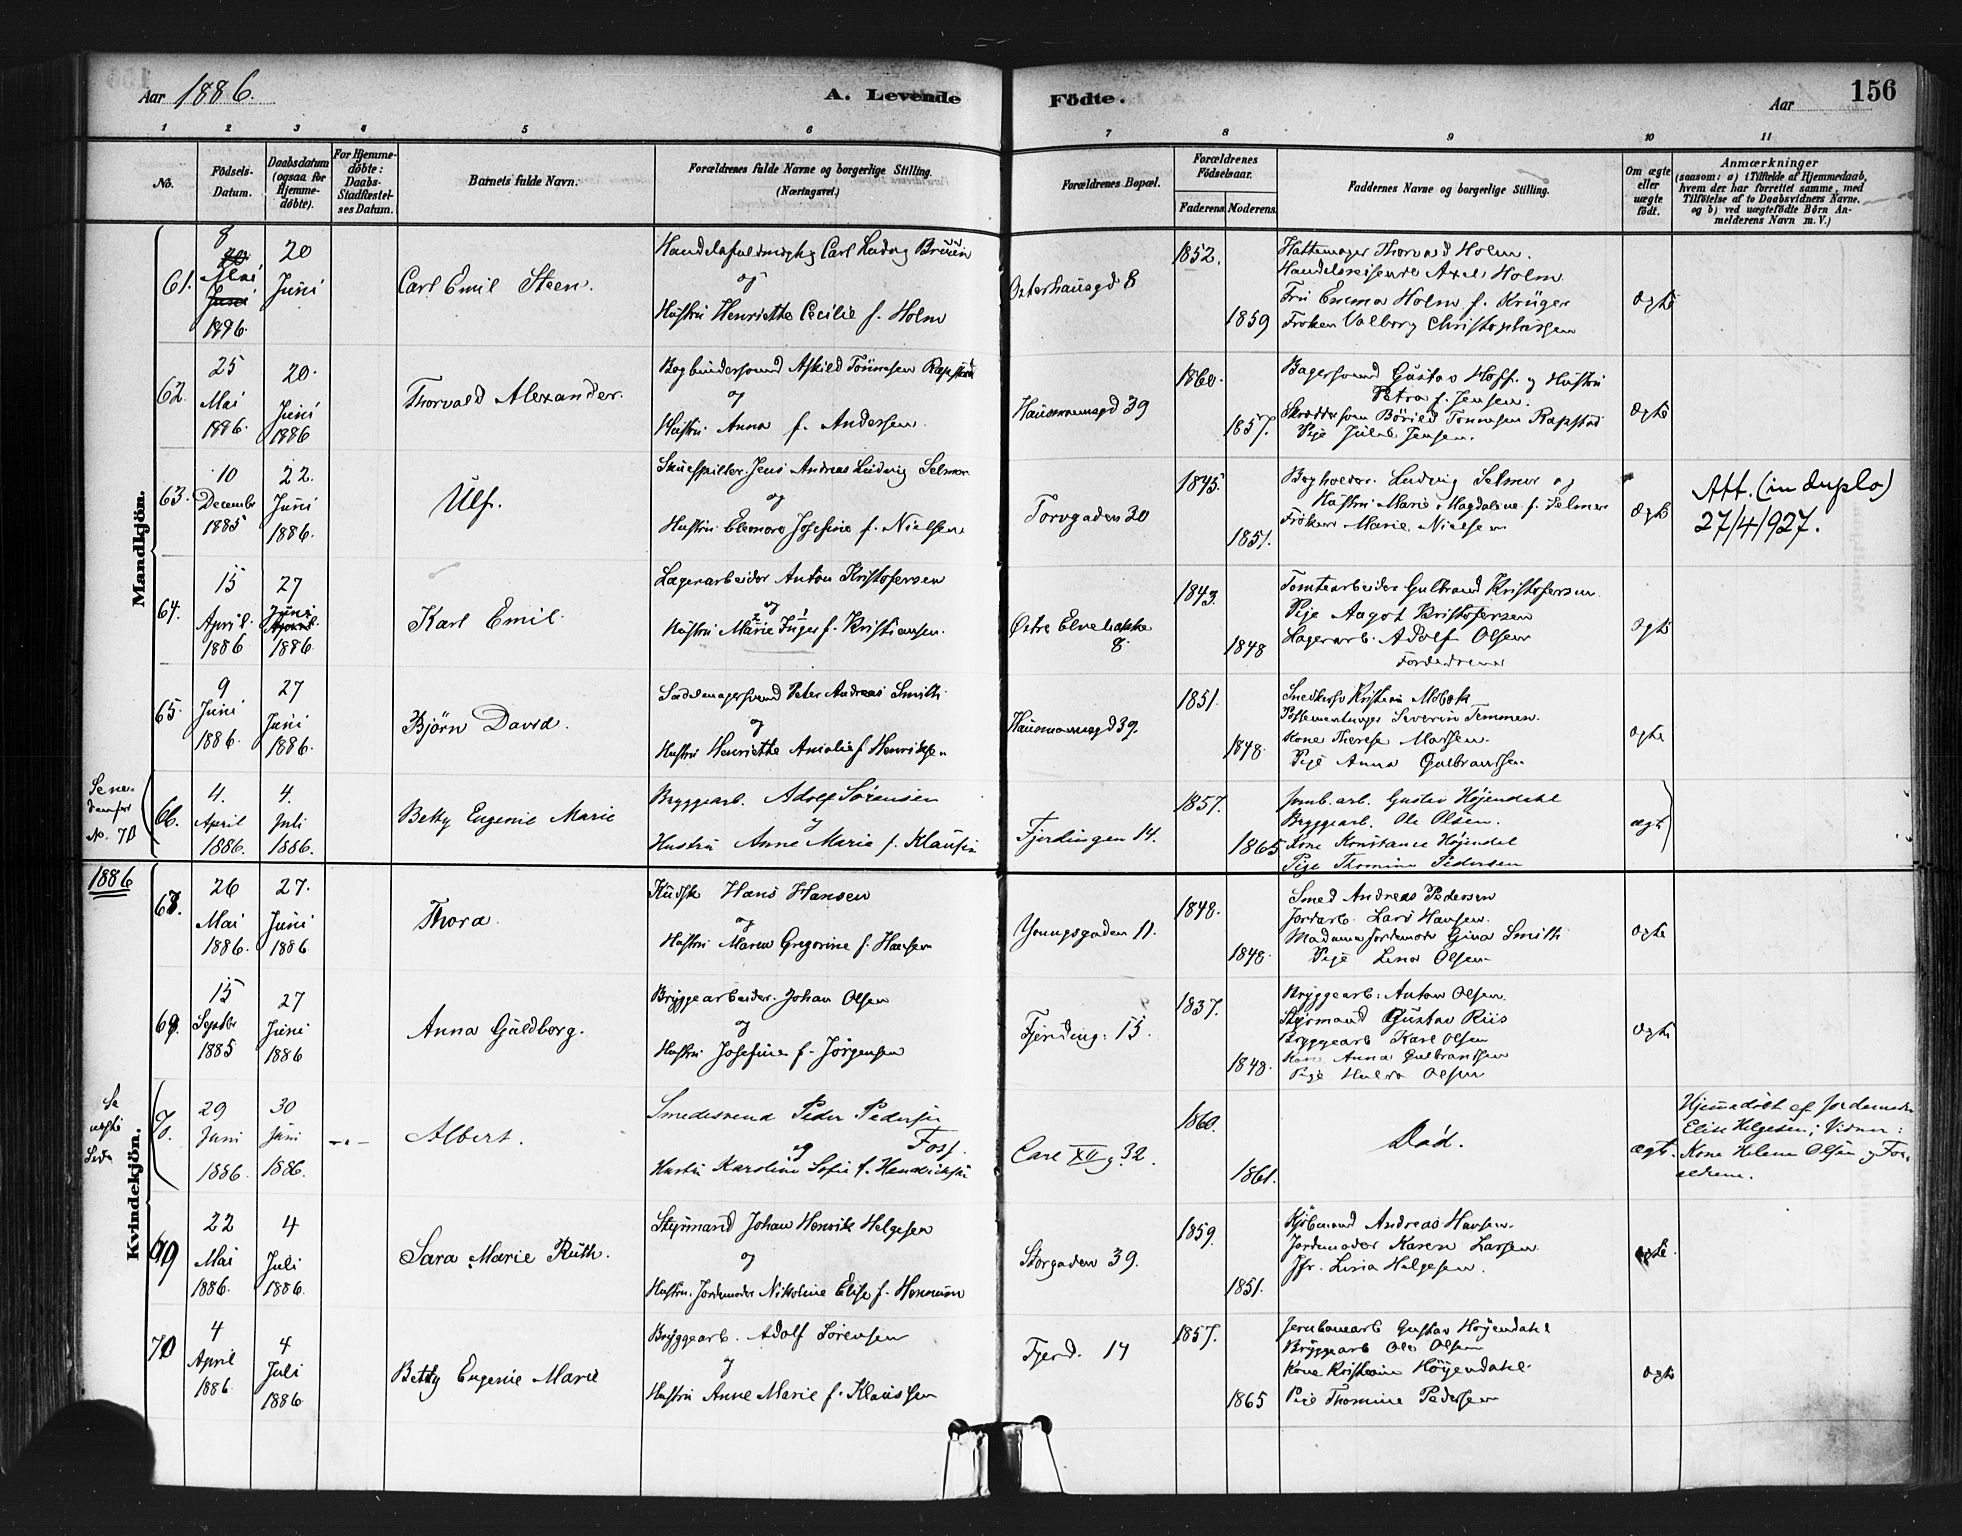 Aar 1886.
A. Levende
Födte.
Aar
156
1 2 3 4 5 6 7 8 9 10 11
No.
Fødsels-Datum.
Daabsdatum (ogsaa for Hjemme-døbte).
For Hjemme-døbte: Daabs-Stadfæstel-ses Datum.
Barnets fulde Navn.
Forældrenes fulde Navne og borgerlige Stilling. (Næringsvei.)
Forældrenes Bopæl.
Forældrenes Fødselsaar.
Faderens. Moderens.
Faddernes Navne og borgerlige Stilling.
Om ægte eller uægte født.
Anmærkninger
(saasom: a) i Tilfælde af Hjemmedaab, hvem der har forrettet samme, med Tilføielse af to Daabsvidners Navne. og b) ved uægtefødte Börn An-melderens Navn m. V.)
Mandkjön.
61. 8 Mai 1886. 20 Juni
Carl Emil Steen.
Carl Ludvig Bruun
og
Hustru Henriette Cecilie f. Holm
Osterhausgd 8
1852.
1859
Hattemager Thorvald Holm.
Handelsreisende Axel Holm
Fru Emma Holm f. Krüger
Frøken Valborg Christophersen
ægte
62. 25 Mai 1886. 20. Juni 1886
Thorvald Alexander.
Bogbindersvend Askild Tönnesen Rapstad
og
Hustru Anna f. Andersen.
Hausmannsgd 39
1860.
1857.
Bagersvend Gustav Hoff. og Hustru
Petra f. Jensen.
Tönnesen Rapstad
Pige Jensen.
ægte
63. 10 December 1885 22. Juni 1886.
Ulf.
Skuespiller Jens Andreas Ludvig Selmer
og
Hustru Elenore Josefine f. Nielsen.
Torvgaden 20
1845.
1851.
Bogholder Ludvig Selmer og
Hustru Marie Magdaline f. Selmer
Frøken Marie Nielsen
ægte
Att. (in duplo)
27/4/927.
64. 15 April 1886 27 Juni 1886.
Karl Emil.
Lagerarbeider Anton Kristofersen
og
Hustru Marie Inger f. Kristiansen.
Østre Elvebakke 8.
1843.
1848
Tomtearbeider Gulbrand Kristofersen
Pige Aagot Kristofersen
Lagerarb. Adolf Olsen
Forældrene
ægte
65. 9 Juni 1886. 27 Juni 1886.
Björn David.
Sadelmagersvend Peter Andreas Smith.
og
Hustru Henriette Amalie f Henriksen
Hausmannsgd 39.
1851.
1848.
Kristian
Severin
Kone Therese Madsen.
Pige Anna Gulbrandsen
ægte
66. 4. April 1886. 4. Juli 1886.
No. 70
Betty Eugenie Marie
Bryggearb. Adolf Sørensen
og
Hustru Anne Marie f. Klausen
Fjerdingen 14.
1857.
1865
Jernb. arb. Gustav Höjendahl
Bryggearb. Ole Olsen.
Kone Konstance Höjendal
Pige Thomine Pedersen
ægte
1886
Kvindekjön.
67. 26 Mai 1886. 27. Juni 1886
Thora.
Kudsk Hans Hansen
og
Hustru Maren Gregorine f. Hansen
Youngsgaden 11.
1848.
1848.
Smed Andreas Pedersen
Jordarb. Lars Hansen.
Madame Jordemoder Gina Smith
Pige Lina Olsen
ægte
68. 15 Septbr 1885 27 Juni 1886
Anna Guldborg.
Bryggearbeider Johan Olsen
og
Hustru Josefine f. Jørgensen
Fjerding. 15.
1837.
1848.
Bryggearb: Anton Olsen.
Styrmand Gustav Riis
Bryggearb Karl Olsen
Kone Anna Gulbrandsen
Pige Hulda Olsen
ægte
Se uægte Side
70. 29 Juni 1886. 30 Juni 1886.
Albert.
Smedesvend Peder Pedersen
og Foss.
Hustru Karoline Sofie f. Hendriksen
Carl XII g. 32.
1860.
1861.
Død.
ægte
Hjemmedøbt af Jordemoder
Elise Helgesen; Vidner:
Kone Helene Olsen og For-
ældrene.
69 22 Mai 1886. 4 Juli 1886.
Sara Marie Ruth.
Styrmand Johan Henrik Helgesen
og
Hustru, Jordemoder Nikoline Elise f. Hermann
Storgaden 39.
1859.
1851.
Kjøbmand Andreas Hansen.
Jordemoder Karen Larsen
Jfr. Lovisa Helgesen.
ægte.
70 4 April 1886. 4 Juli 1886
Betty Eugenie Marie
Bryggearb. Adolf Sørensen
og
Hustru Anne Marie f. Klaussen
Fjerd. 14
1857.
1865
Jernbanearb Gustav Höyendahl
Bryggearb Ole Olsen
Kone Höyendahl.
Pige Thomine Pedersen
ægte